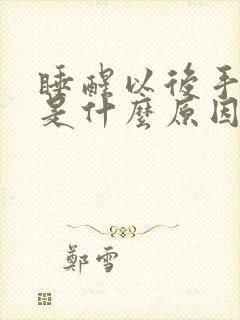 睡醒以後手
是什麼原因
鄭雪